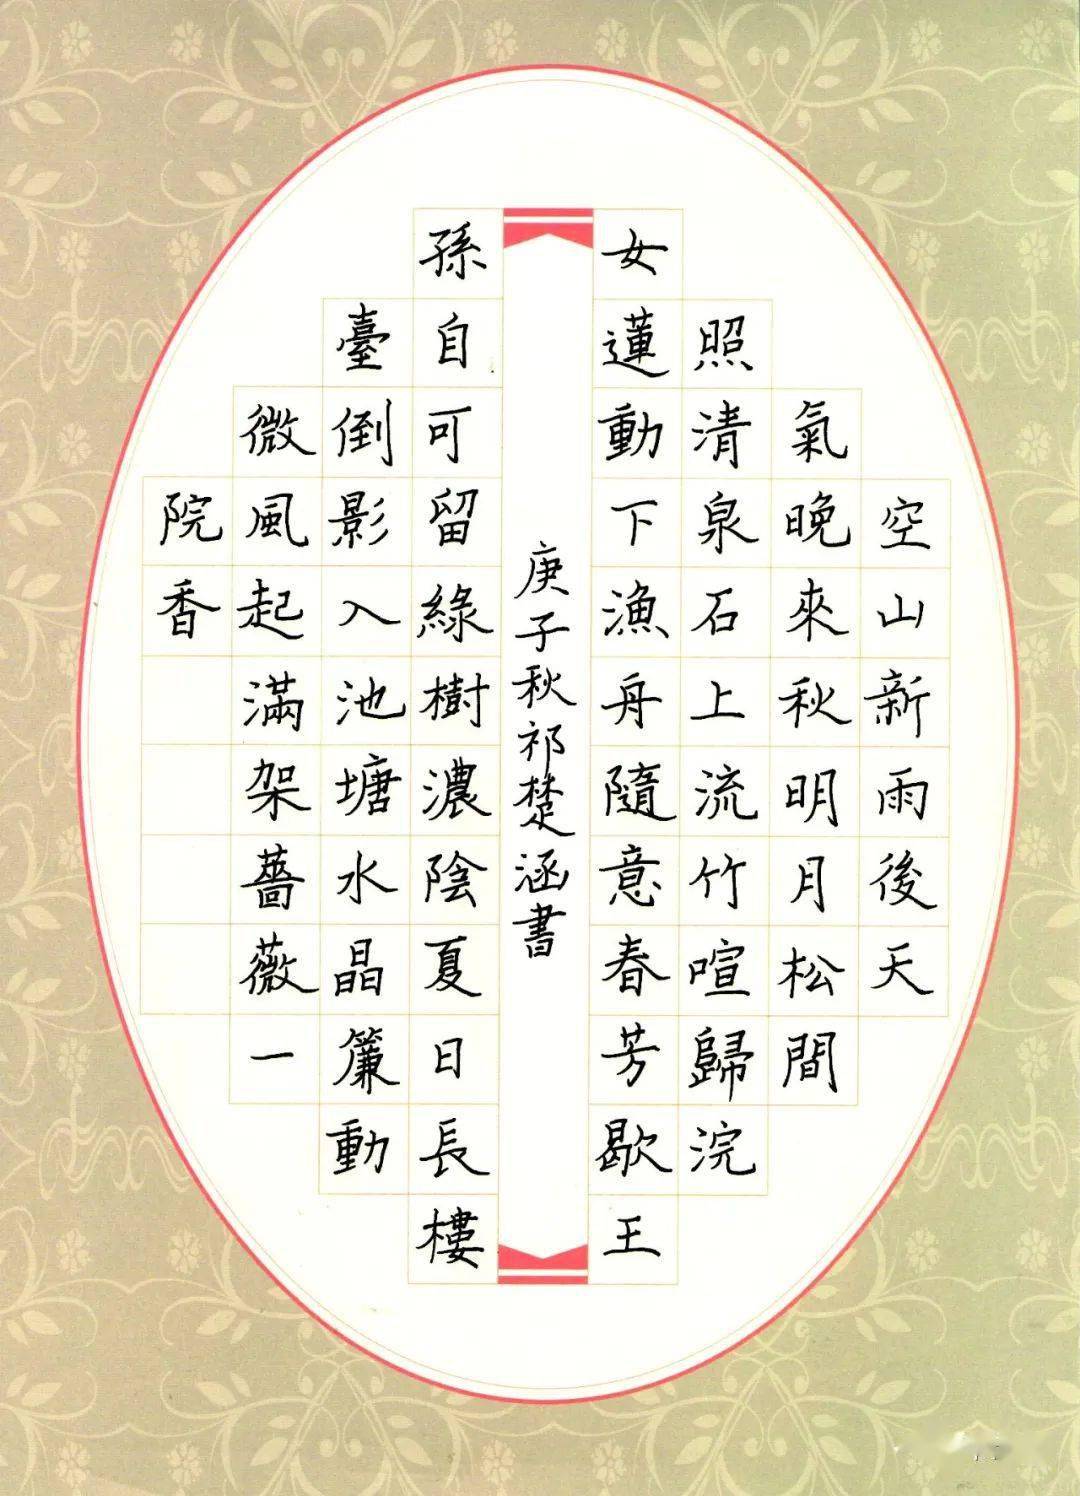 空山新雨後天
氣晚來秋明月松間
照清泉石上流竹喧歸浣
女蓮動下漁舟隨意春芳歇王
孫自可留綠樹濃陰夏日長樓
臺倒影入池塘水晶簾動
微風起滿架薔薇一
院香
庚子秋祁楚涵書